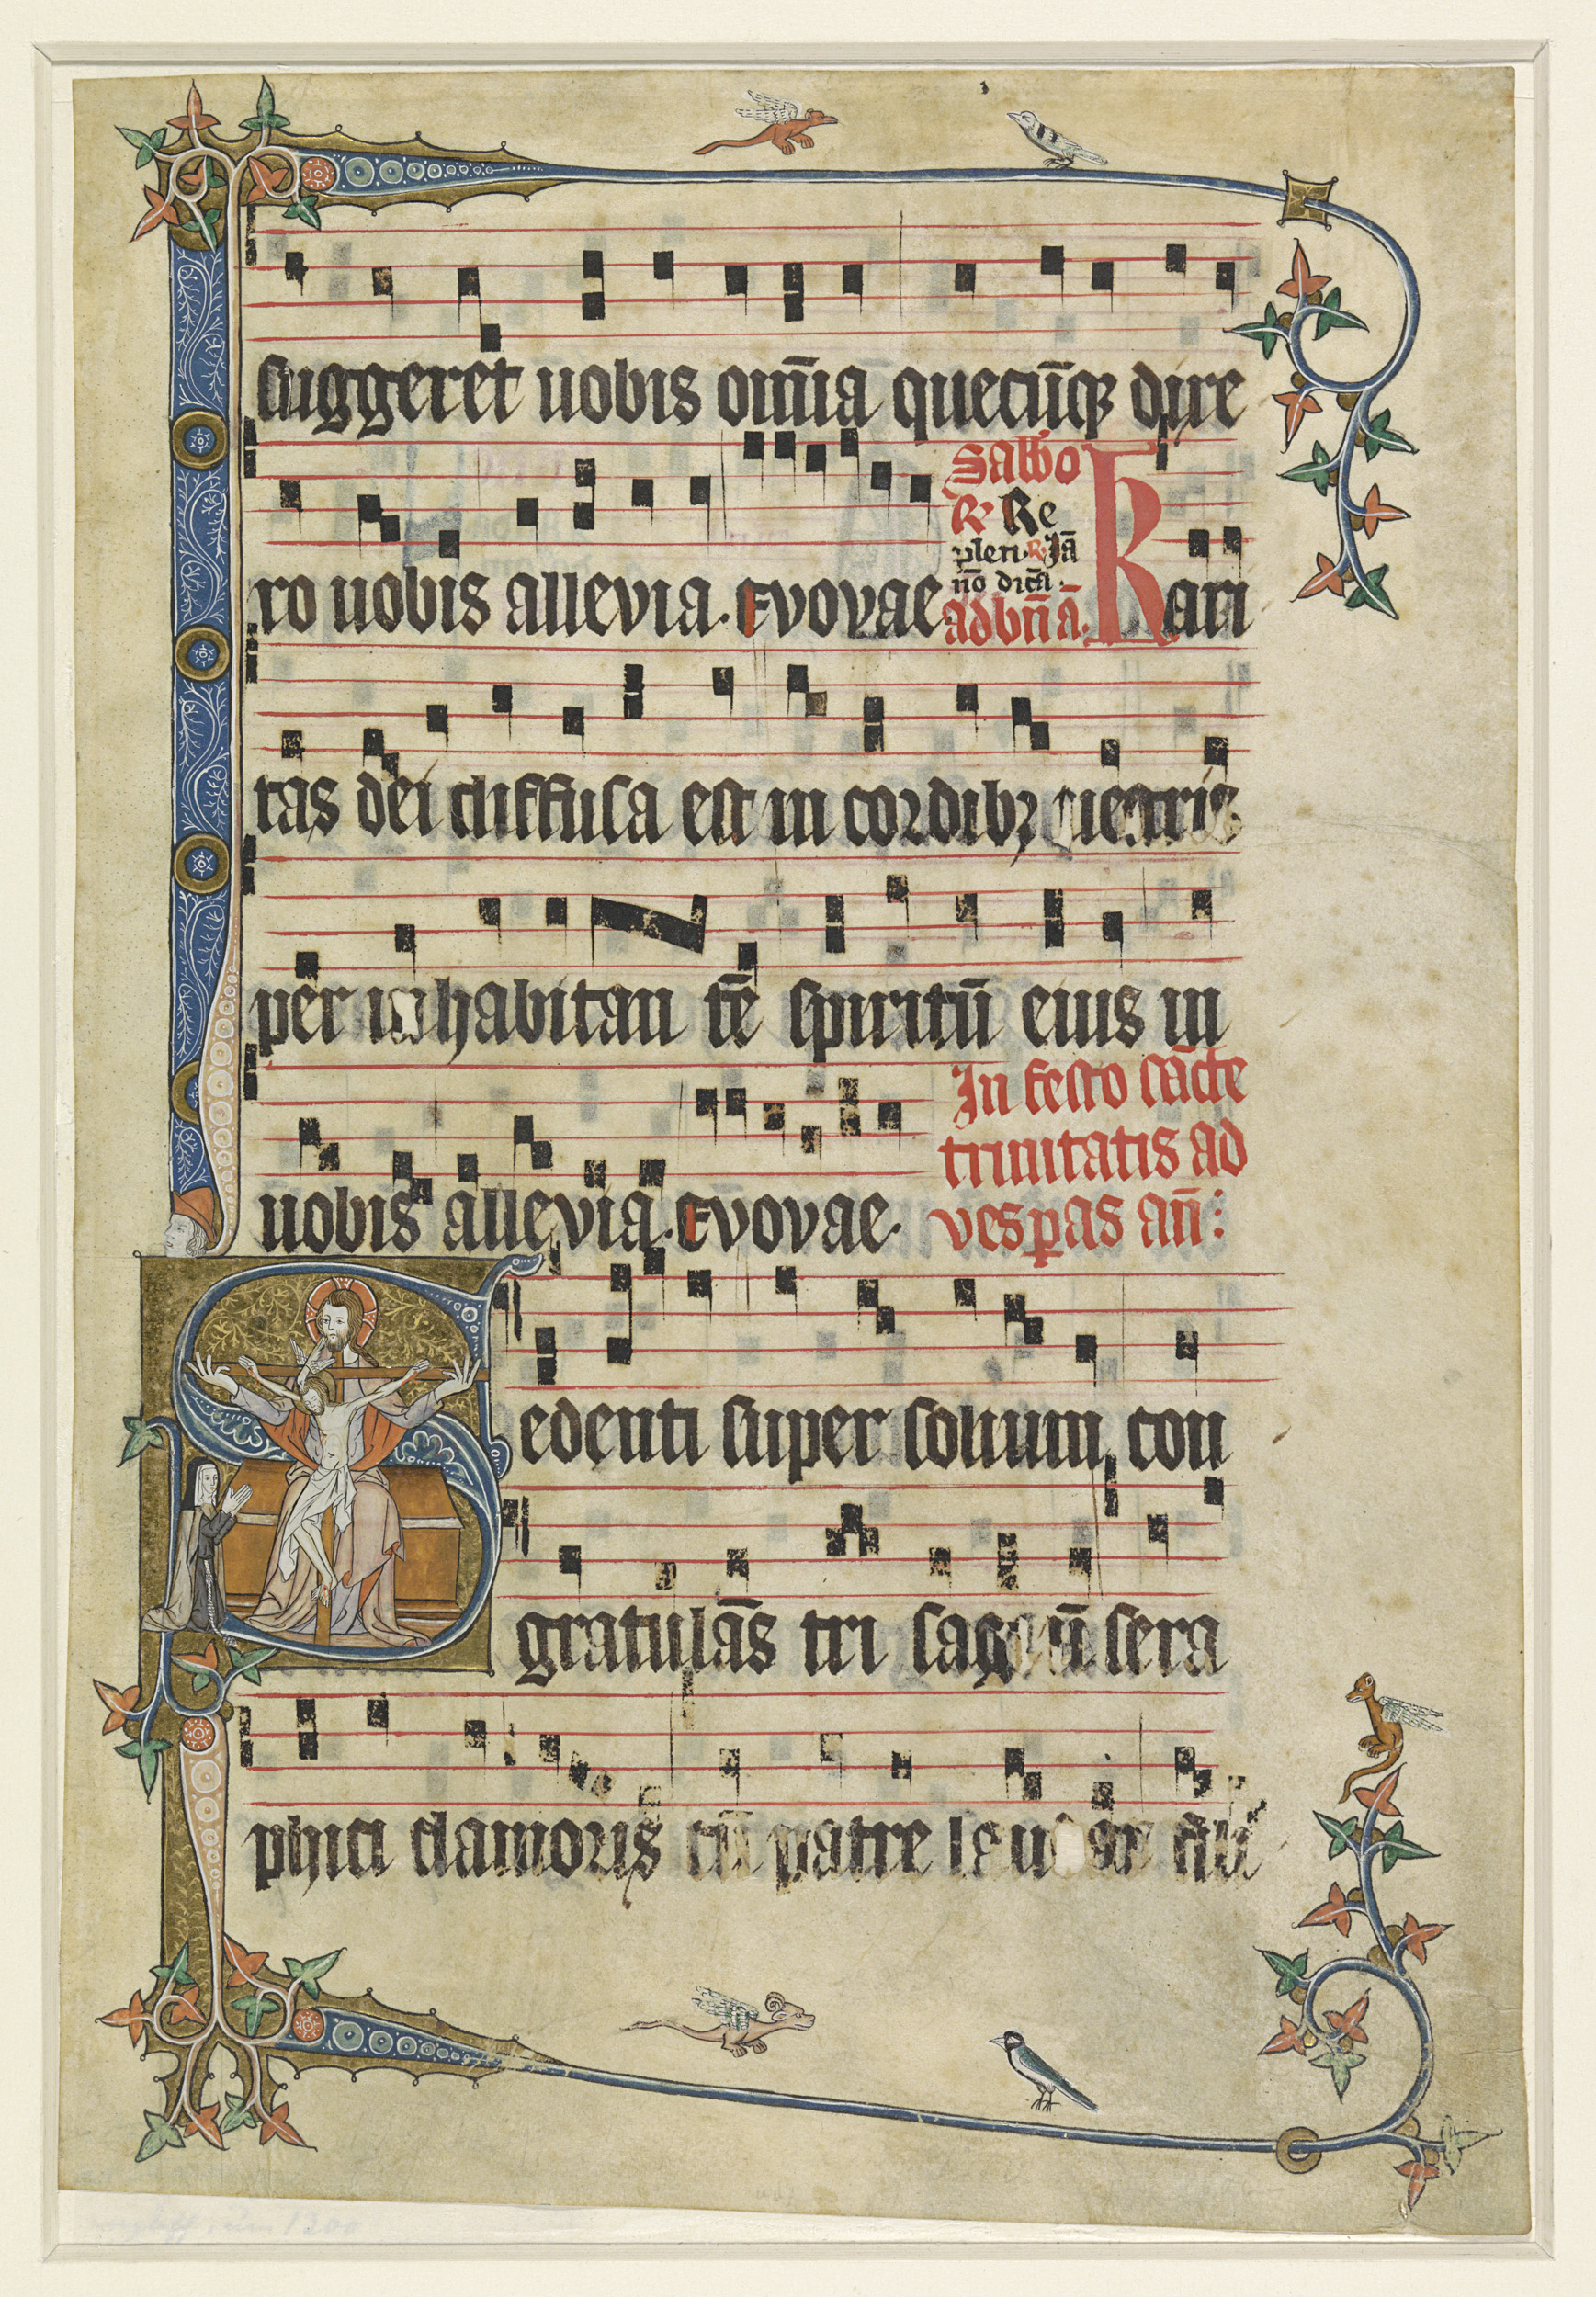 suggeret uobis om̄ia quecūq dixe
ro uobis alleuia. Euouae
Sabbo
R Re
pleti. R. Iā
nō dicā.
ad bn̄ ā.
Kari
tas dei diffusa est in cordibꝫ uestris
per inhabitan tē spiritū eius in
uobis alleuia. Euouae.
In festo sācte
trinitatis ad
vesꝑas an̄:
Sedenti super solium con
gratulās tri sagiū sera
phici clamoris cū patre